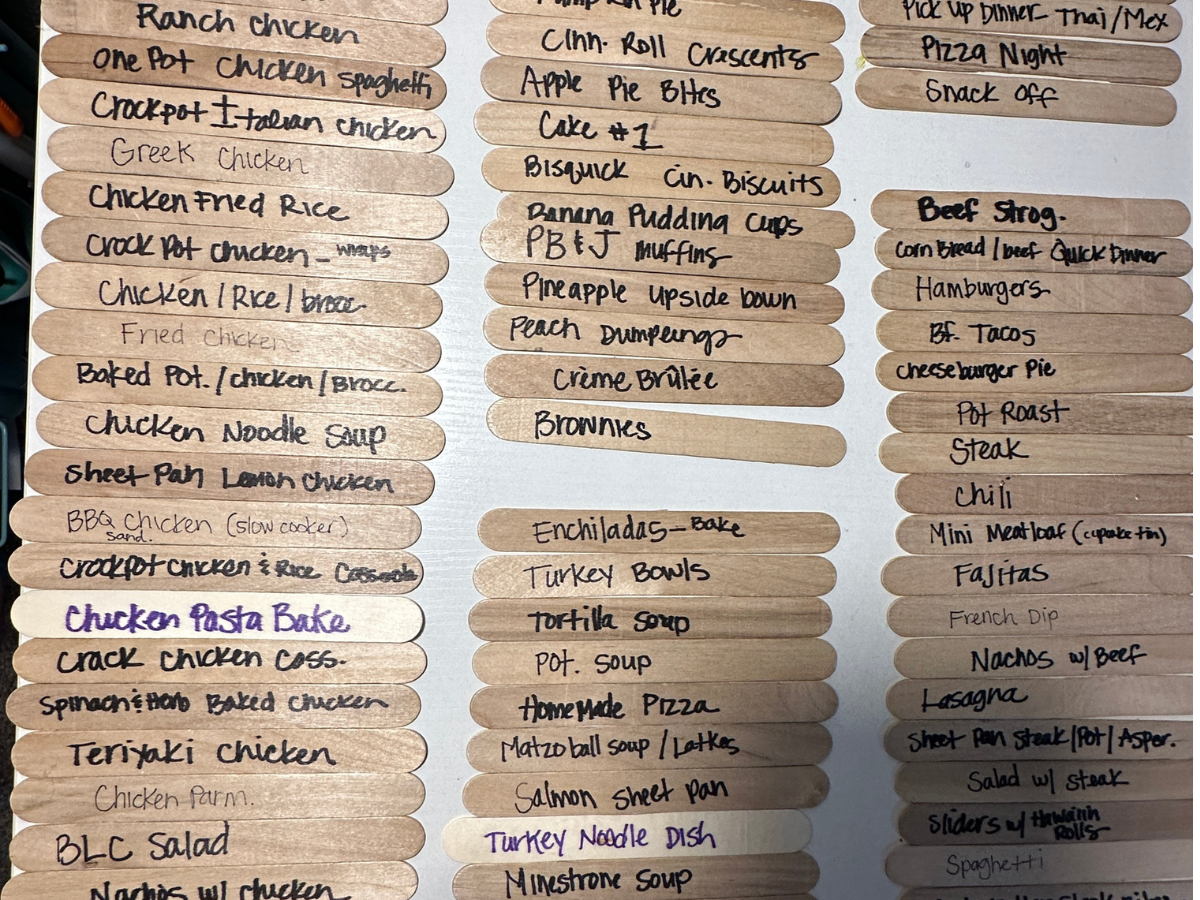 Ranch chicken
one Pot chicken spaghetti
Crockpot Italian chicken
Greek Chicken
Chicken Fried Rice
Crock Pot chicken - wraps
Chicken / Rice / brocc.
Fried Chicken
Baked Pot. / chicken / Brocc.
Chicken Noodle Soup
Sheet Pan Lemon Chicken
BBQ Chicken (slow cooker)
Sand.
Crockpot chicken & Rice Casserole
Chicken Pasta Bake
Crack chicken Cass.
Spinach & Herb Baked chicken
Teriyaki chicken
Chicken Parm.
BLC Salad
Nachos w/ chicken
Pumpkin Pie
Cinn. Roll Crescents
Apple Pie Bites
Cake #1
Bisquick Cin. Biscuits
Banana Pudding Cups
PB & J muffins
Pineapple upside down
Peach Dumplings
Crème Brûlée
Brownies
Enchiladas - Bake
Turkey Bowls
Tortilla Soup
Pot. Soup
Homemade Pizza
Matzo ball soup / Latkes
Salmon sheet pan
Turkey Noodle Dish
Minestrone Soup
Pick up Dinner Thai/Mex
Pizza Night
Snack off
Beef Strog.
Corn Bread / beef Quick Dinner
Hamburgers
Bf. Tacos
Cheeseburger Pie
Pot Roast
Steak
Chili
Mini Meatloaf (cupcake tin)
Fajitas
French Dip
Nachos w/ Beef
Lasagna
Sheet Pan Steak/Pot/Asper.
Salad w/ steak
Sliders w/ Hawaiin
Rolls
Spaghetti